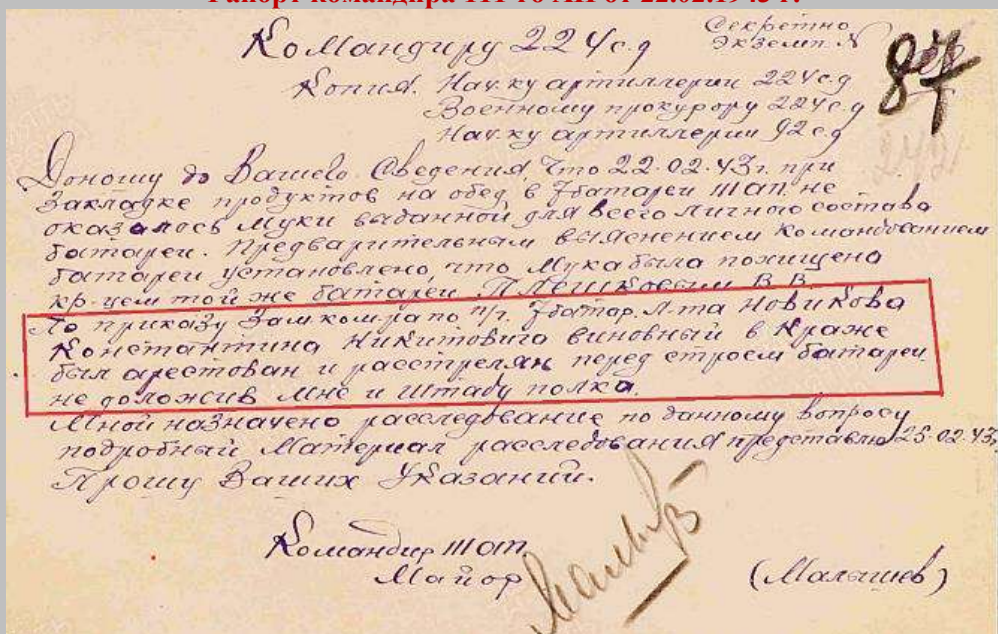 Рапорт командира 111-го АП от 22.02.1943 г.
Командиру 224 с.д
Секретно
Экземп. N
87
242
Копия. Нач-ку артиллерии 224 с.д
Военному прокурору 224 с.д
Нач-ку артиллерии 92 с.д
Доношу до Вашево Сведения, что 22.02.43 г. при
закладке продуктов на обед в 7 батареи 111 ап. не
оказалось муки выданной для всего личного состава
батареи. Предварительным выяснением командованием
батареи установлено, что Мука была похищена
кр-цем той же батареи Плешковым В.В.
По приказу Замком-ра по п/ч. 7 батар. Л-та Новикова
Константина Никитовича виновный в краже
был арестован и расстрелян перед строем батареи
не доложив Мне и Штабу полка.
Мной назначено расследование по данному вопросу
подробный Материал расследования представлю 25.02.43г
Прошу Ваших Указаний.
Командир 111 ап.
Майор
(Малышев)